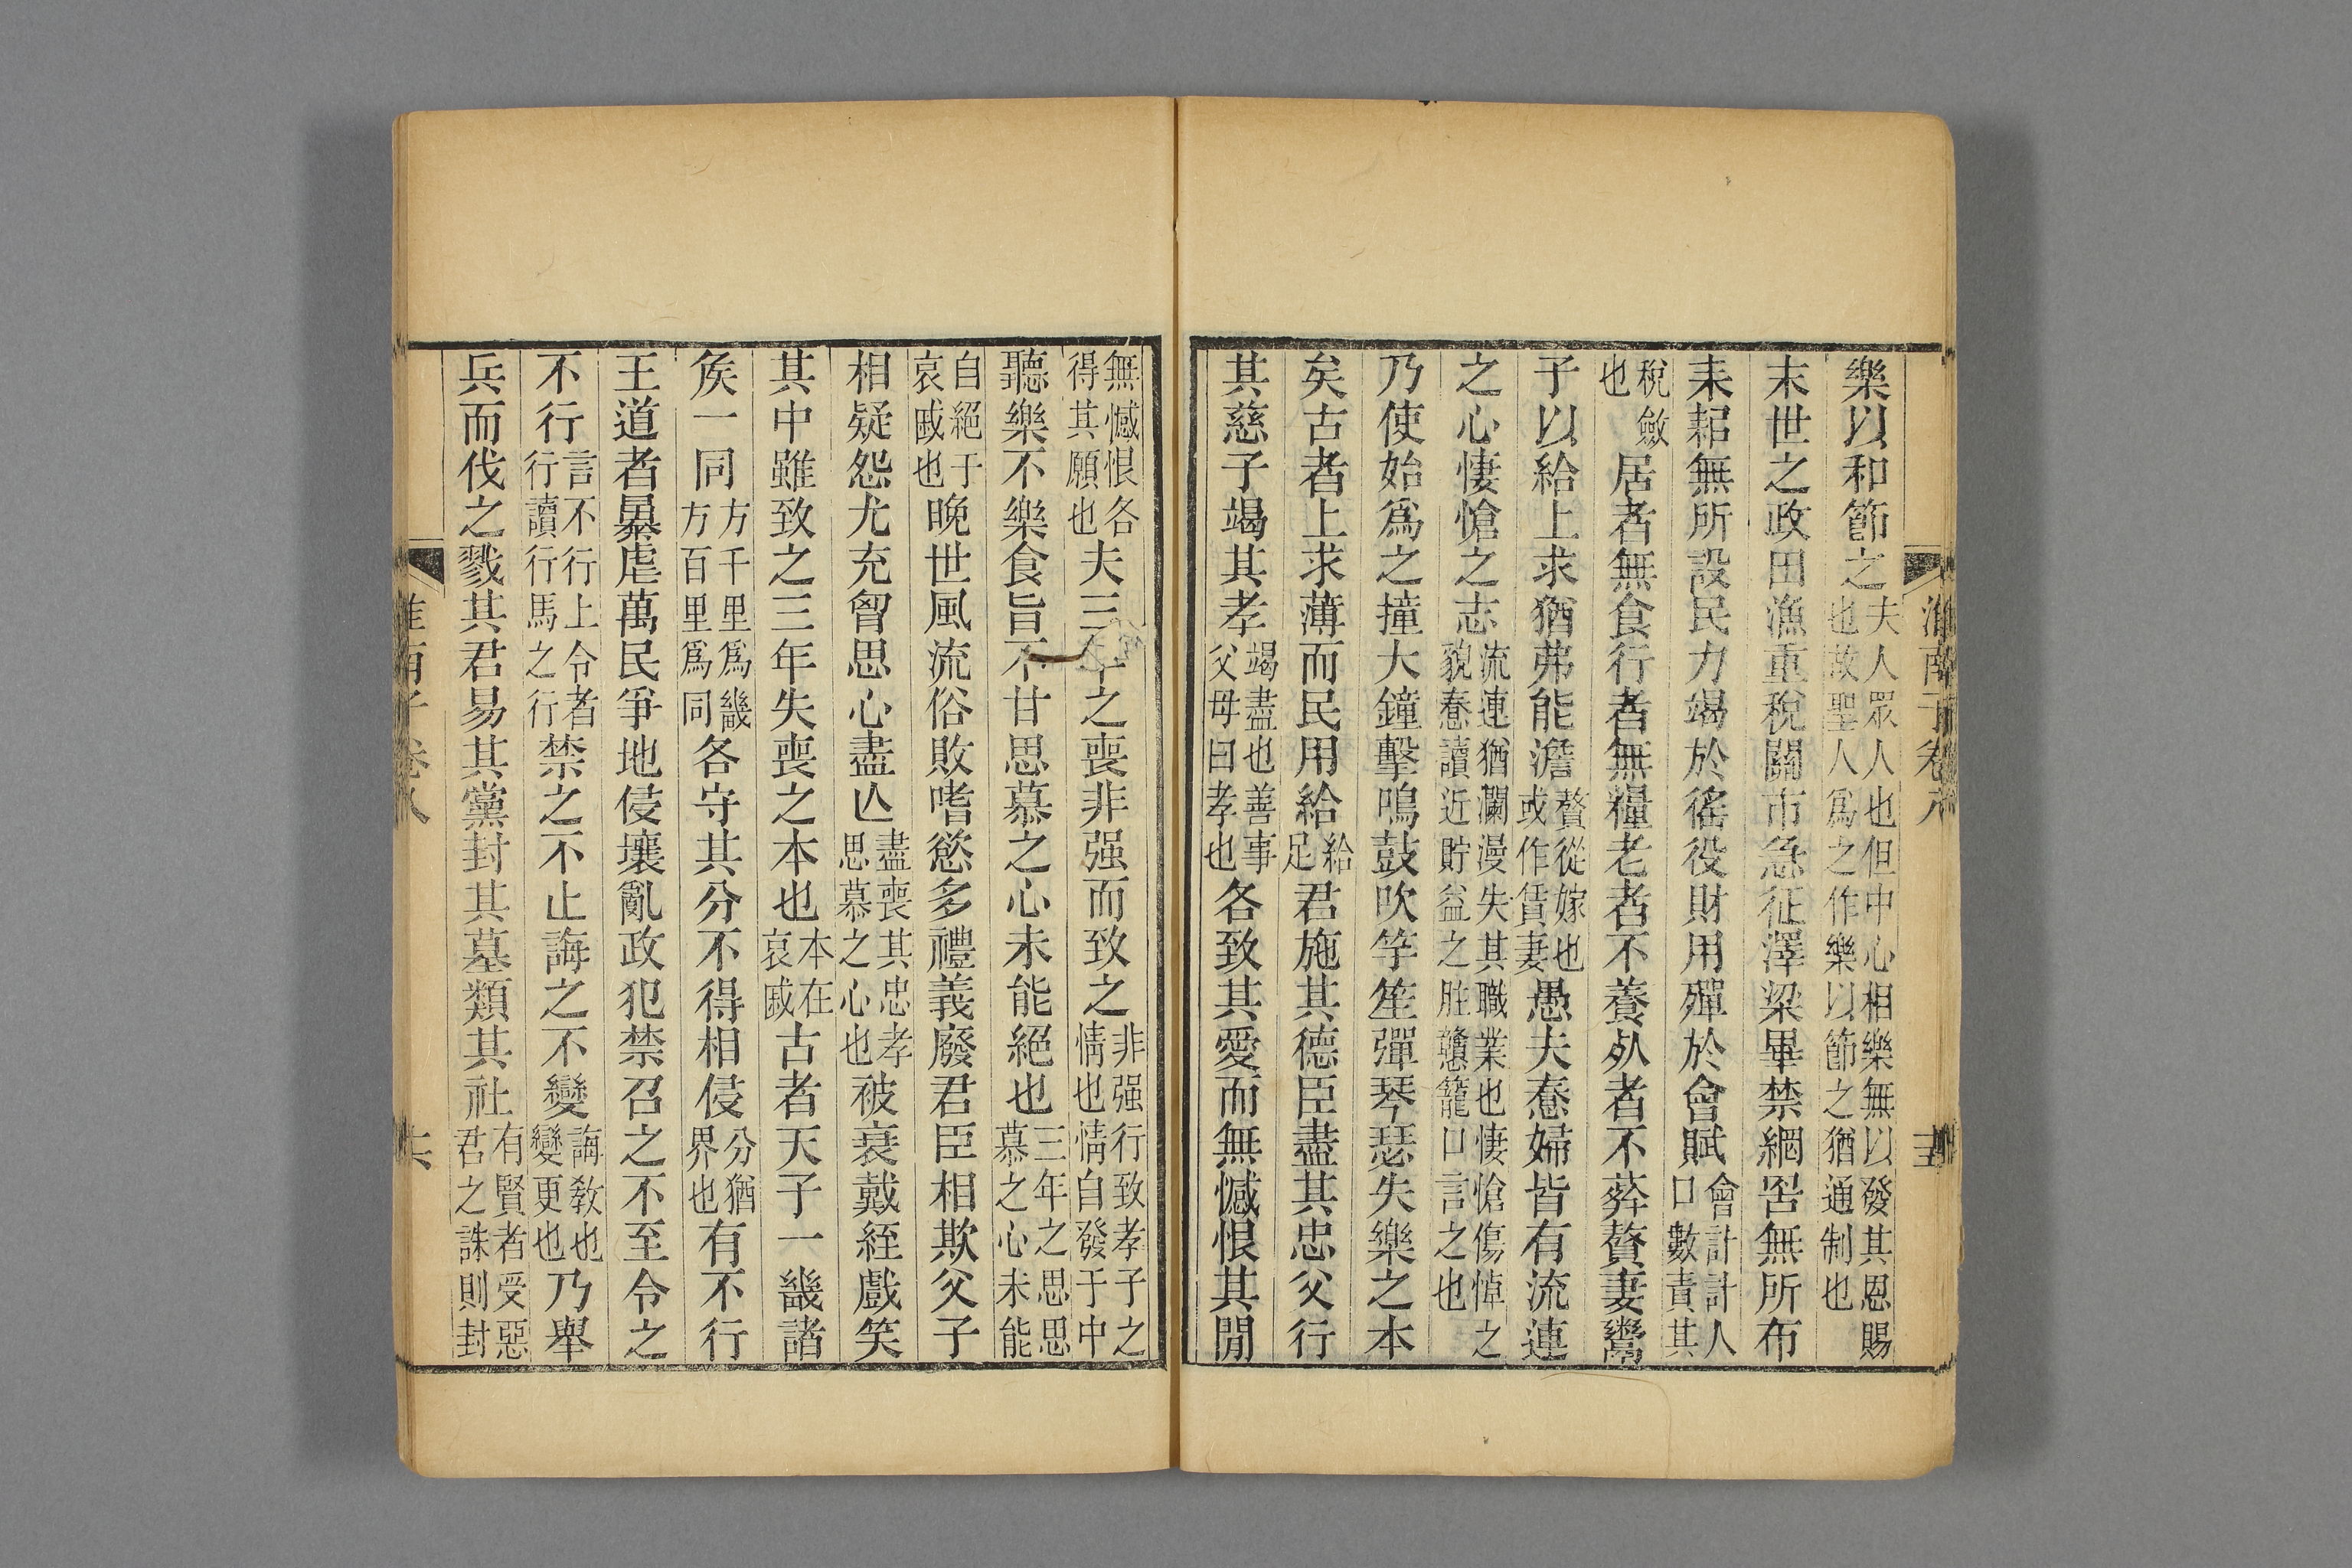 淮南子卷八
十五
樂以和節之夫人眾人也但中心相樂無以發其恩賜也故聖人爲之作樂以節之猶通制也
末世之政田漁重稅關市急征澤梁畢禁網罟無所布
耒耜無所設民力竭於徭役財用殫於會賦會計計人口數責其
稅斂也居者無食行者無糧老者不養死者不葬贅妻鬻
子以給上求猶弗能澹贅從嫁也或作賃妻愚夫惷婦皆有流連
之心悽愴之志流連猶瀾漫失其職業也悽愴傷悼之貌惷讀近貯益之肚戇籠口言之也
乃使始爲之撞大鐘擊鳴鼓吹竽笙彈琴瑟失樂之本
矣古者上求薄而民用給給足君施其德臣盡其忠父行
其慈子竭其孝竭盡也善事父母曰孝也各致其愛而無憾恨其閒
無憾恨各得其願也夫三年之喪非强而致之非强行致孝子之情也情自發于中
聽樂不樂食旨不甘思慕之心未能絕也三年之思思慕之心未能
自絕于哀戚也晚世風流俗敗嗜慾多禮義廢君臣相欺父子
相疑怨尤充胷思心盡亾盡喪其忠孝思慕之心也被衰戴絰戲笑
其中雖致之三年失喪之本也本在哀戚古者天子一畿諸
矦一同方千里爲畿方百里爲同各守其分不得相侵分猶界也有不行
王道者暴虐萬民爭地侵壤亂政犯禁召之不至令之
不行言不行上令者行讀行馬之行禁之不止誨之不變誨敎也變更也乃舉
兵而伐之戮其君易其黨封其墓類其社有賢者受惡君之誅則封
淮南子卷八
十六